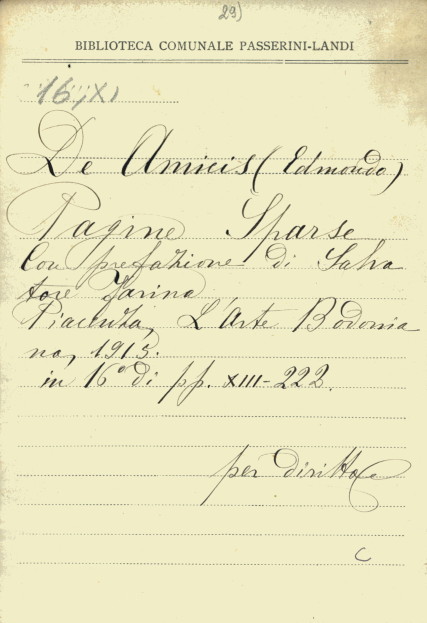 29)
BIBLIOTECA COMUNALE PASSERINI-LANDI
16, XI
De Amicis (Edmondo)
Pagine Sparse
Con prefazione di Salva
tore Farina
Piacenza, L'Arte Bodonia
na, 1915.
in 16º di pp. XIII-222.
per diritto
C